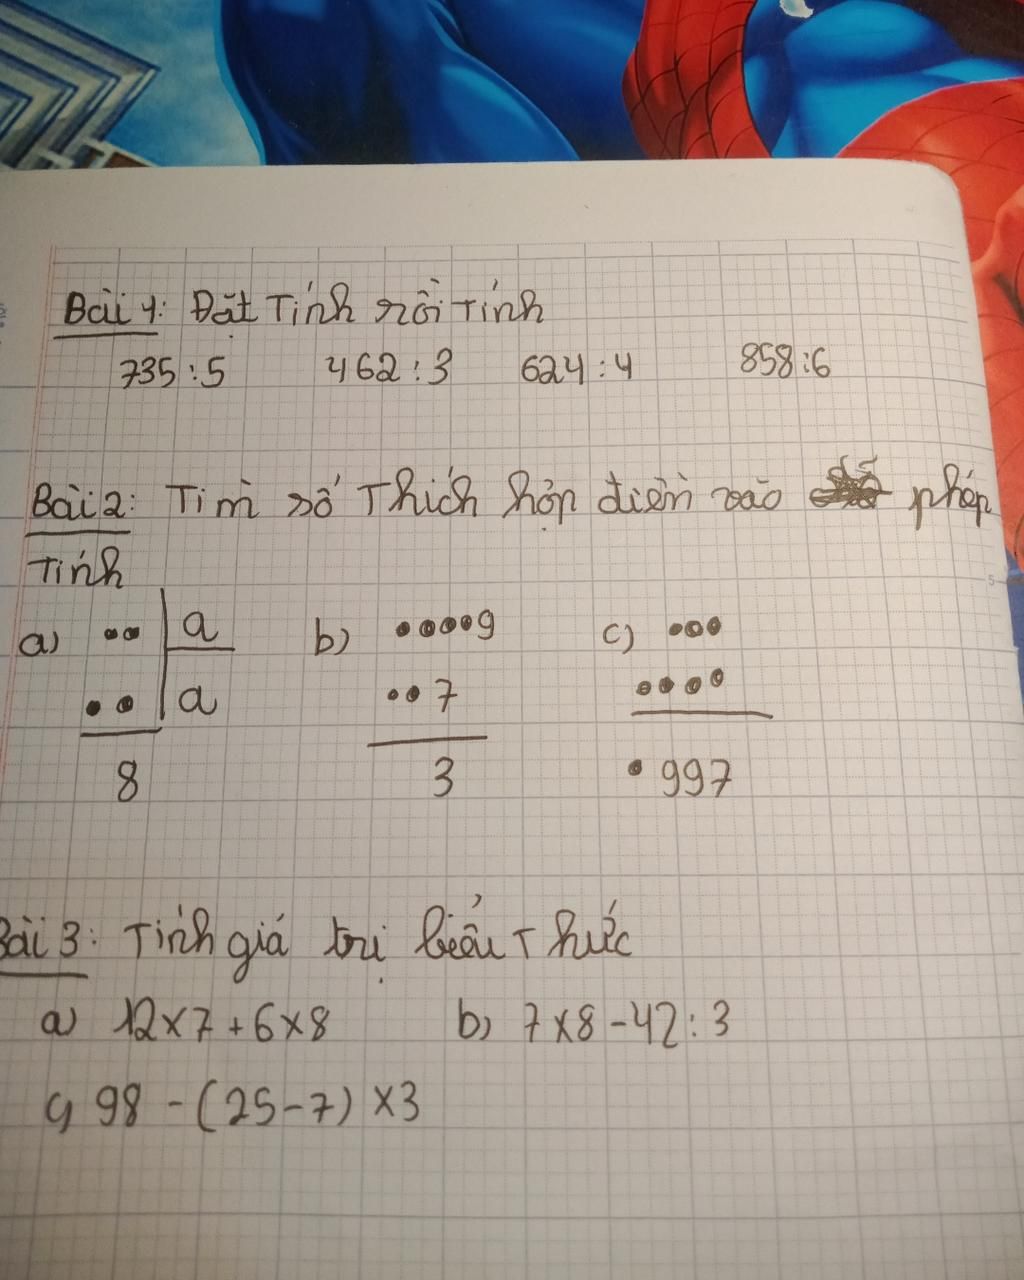 Bài 1: Đặt Tính rồi Tính
735 : 5 462 : 3 624 : 4 858 : 6
Bài 2: Tìm số Thích hợp điền vào phép
Tính
a) •• | a b) ••••9 c) •••
•• | a ••7 ••••
8 3 •997
Bài 3: Tính giá trị biểu Thức
a) 12 x 7 + 6 x 8 b) 7 x 8 - 42 : 3
c) 98 - (25 - 7) x 3